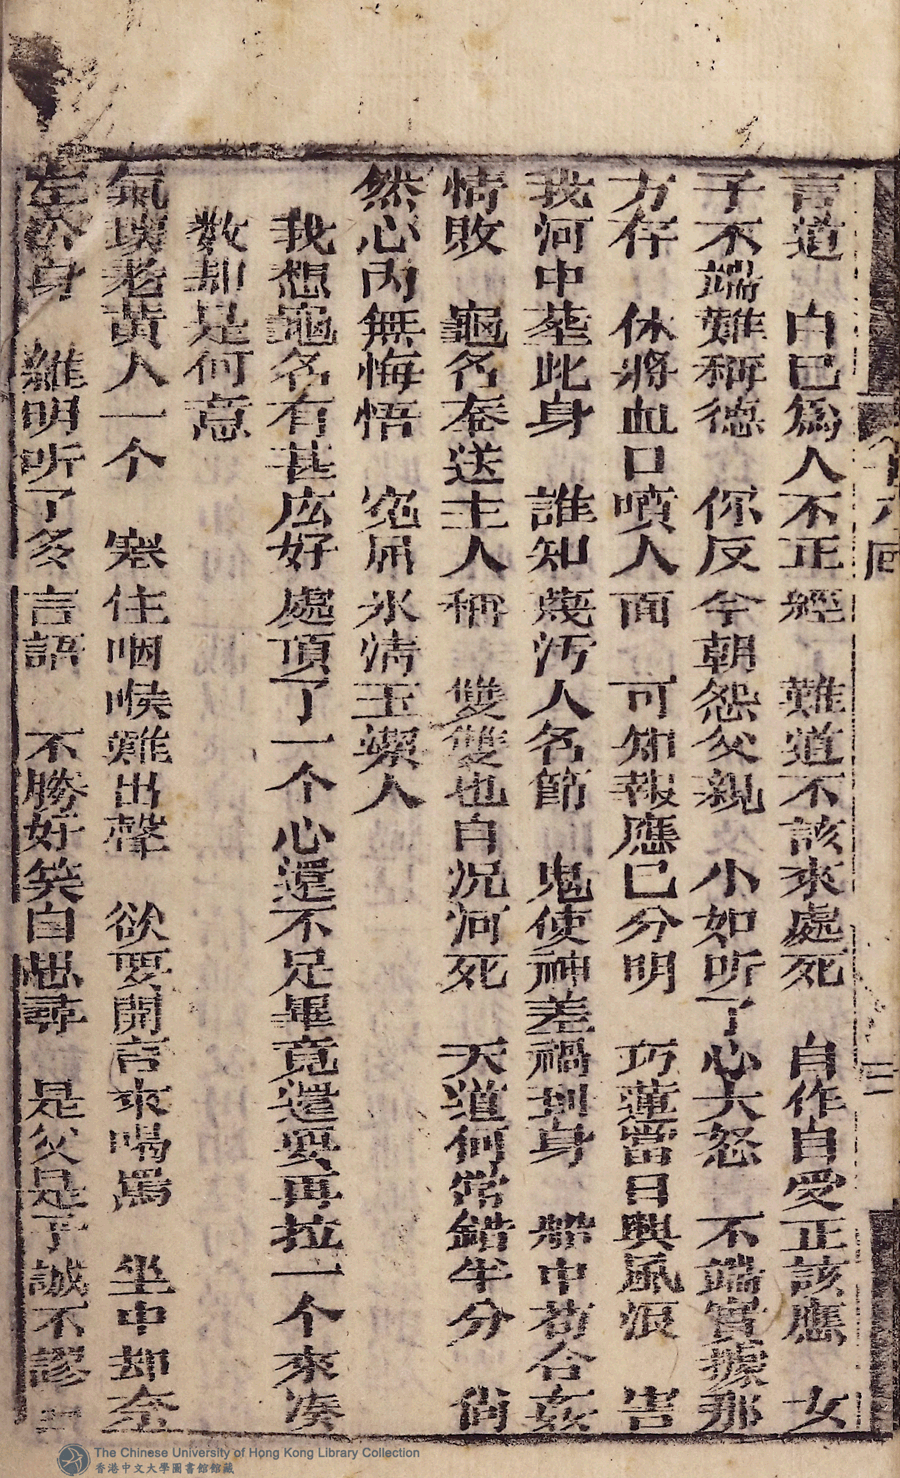 言道　自己為人不正經　難道不該來處死　自作自受正該應　女
子不端難稱德　你反今朝怨父親　小如听了心大怒　不端實據那
方存　休將血口噴人面　可知報應已分明　巧蓮當日興風浪　害
我河中塟此身　誰知蔑污人名節　鬼使神差禍到身　船中苟合姦
情敗　龜名奉送主人稱　雙雙也自況河死　天道何常錯半分　俏
然心内無悔悟　冤屈氷清玉潔人
我想龜名有甚庅好處頂了一个心還不足畢竟還要再拉一个來凑
数却是何意
氣壞老黄人一个　塞住咽喉難出聲　欲要開言來喝罵　坐中却
身　羅明听了多言語　不勝好笑自思尋　是父是子誠不謬
回
三
The Chinese University of Hong Kong Library Collection
香港中文大學圖書館館藏